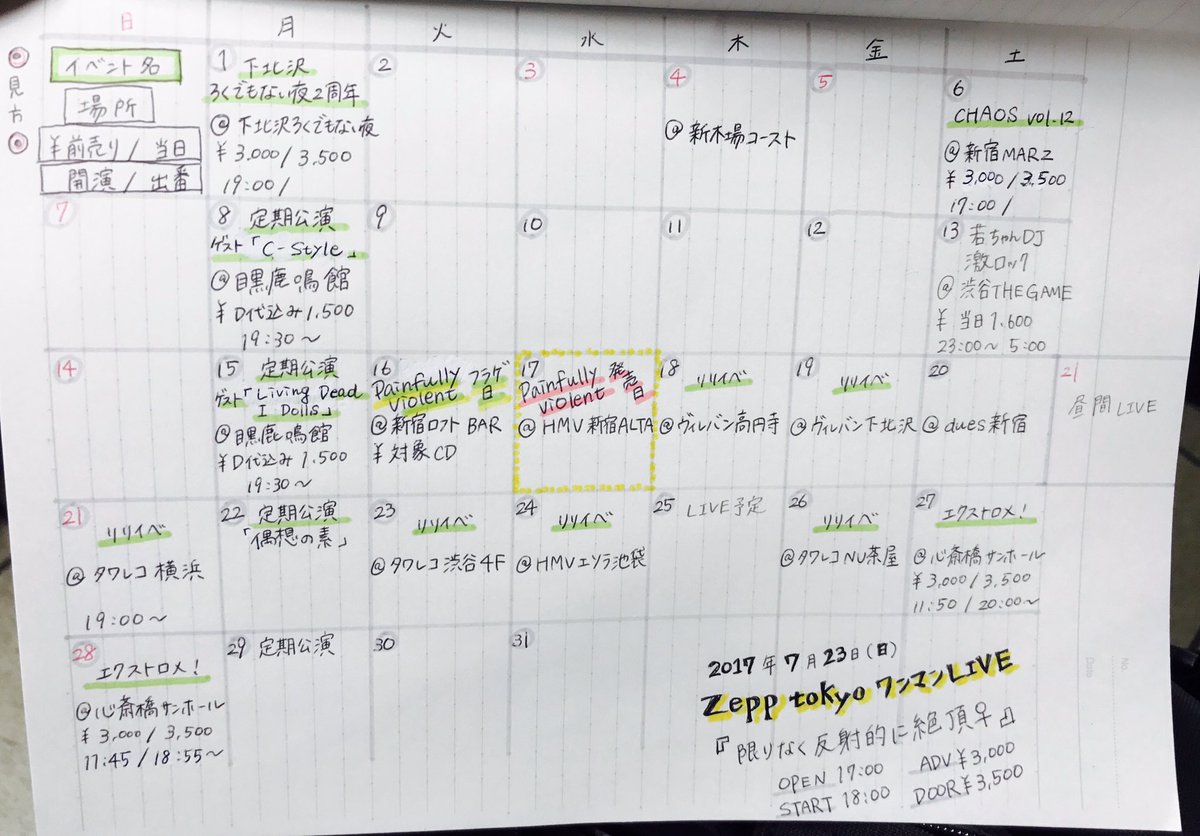 日 月 火 水 木 金 土
◎見方◎
イベント名
場所
¥前売り / 当日
開演 / 出番
1 下北沢
ろくでもない夜2周年
@下北沢ろくでもない夜
¥3.000 / 3,500
19:00 /
2
3
4
@新木場コースト
5
6
CHAOS vol.12
@新宿MARZ
¥3,000 / 3,500
17:00 /
7
8 定期公演
ゲスト「C-Style」
@目黒鹿鳴館
¥D代込み1.500
19:30〜
9
10
11
12
13 若ちゃんDJ
激ロック
@渋谷THEGAME
¥ 当日1.600
23:00〜 5:00
14
15 定期公演
ゲスト「Living Dead
I Dolls」
@目黒鹿鳴館
¥D代込み1,500
19:30〜
16
Painfully フラゲ
violent 日
@新宿ロフト BAR
¥対象CD
17
Painfully 発売日
violent
@HMV新宿ALTA
18 リリイベ
@ヴィレバン高円寺
19
リリイベ
@ヴィレバン下北沢
20
@dues新宿
21
昼間LIVE
21
リリイベ
@タワレコ横浜
19:00〜
22 定期公演
「偶想の素」
23
リリイベ
@タワレコ渋谷4F
24 リリイベ
@HMVエソラ池袋
25 LIVE予定
26
リリイベ
@タワレコNU茶屋
27
エクストロメ!
@心斎橋サンホール
¥3,000 / 3,500
11:50 / 20:00〜
28
エクストロメ!
@心斎橋サンホール
¥3,000 / 3,500
11:45 / 18:55〜
29 定期公演
30
31
2017年7月23日(日)
Zepp tokyo ワンマンLIVE
『限りなく反射的に絶頂♀』
OPEN 17:00
START 18:00
ADV ¥3,000
DOOR ¥3,500
No.
Date